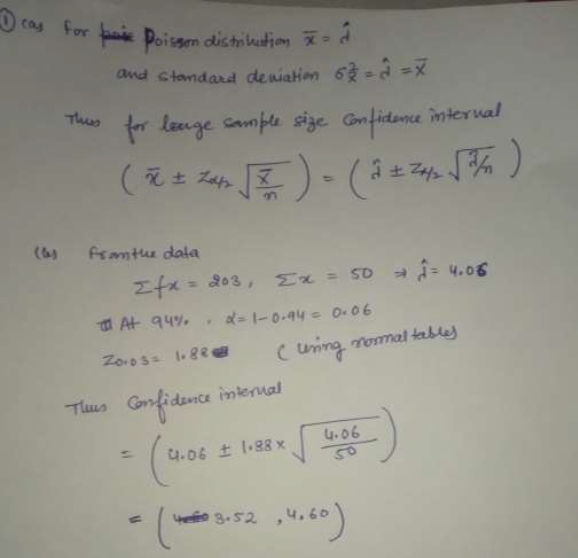 ① (a) For Poisson distribution x̄ = λ̂
and standard deviation σ²x̄ = λ̂ = x̄
Thus for large sample size Confidence interval
( x̄ ± Zα/2 √(x̄/n) ) = ( λ̂ ± Zα/2 √(λ̂/n) )
(b) From the data
Σfx = 203, Σx = 50 ⇒ λ̂ = 4.06
At 94%. , α = 1-0.94 = 0.06
Z0.03 = 1.88 ( using normal tables)
Thus Confidence interval
= ( 4.06 ± 1.88 × √(4.06/50) )
= ( 3.52 , 4.60 )